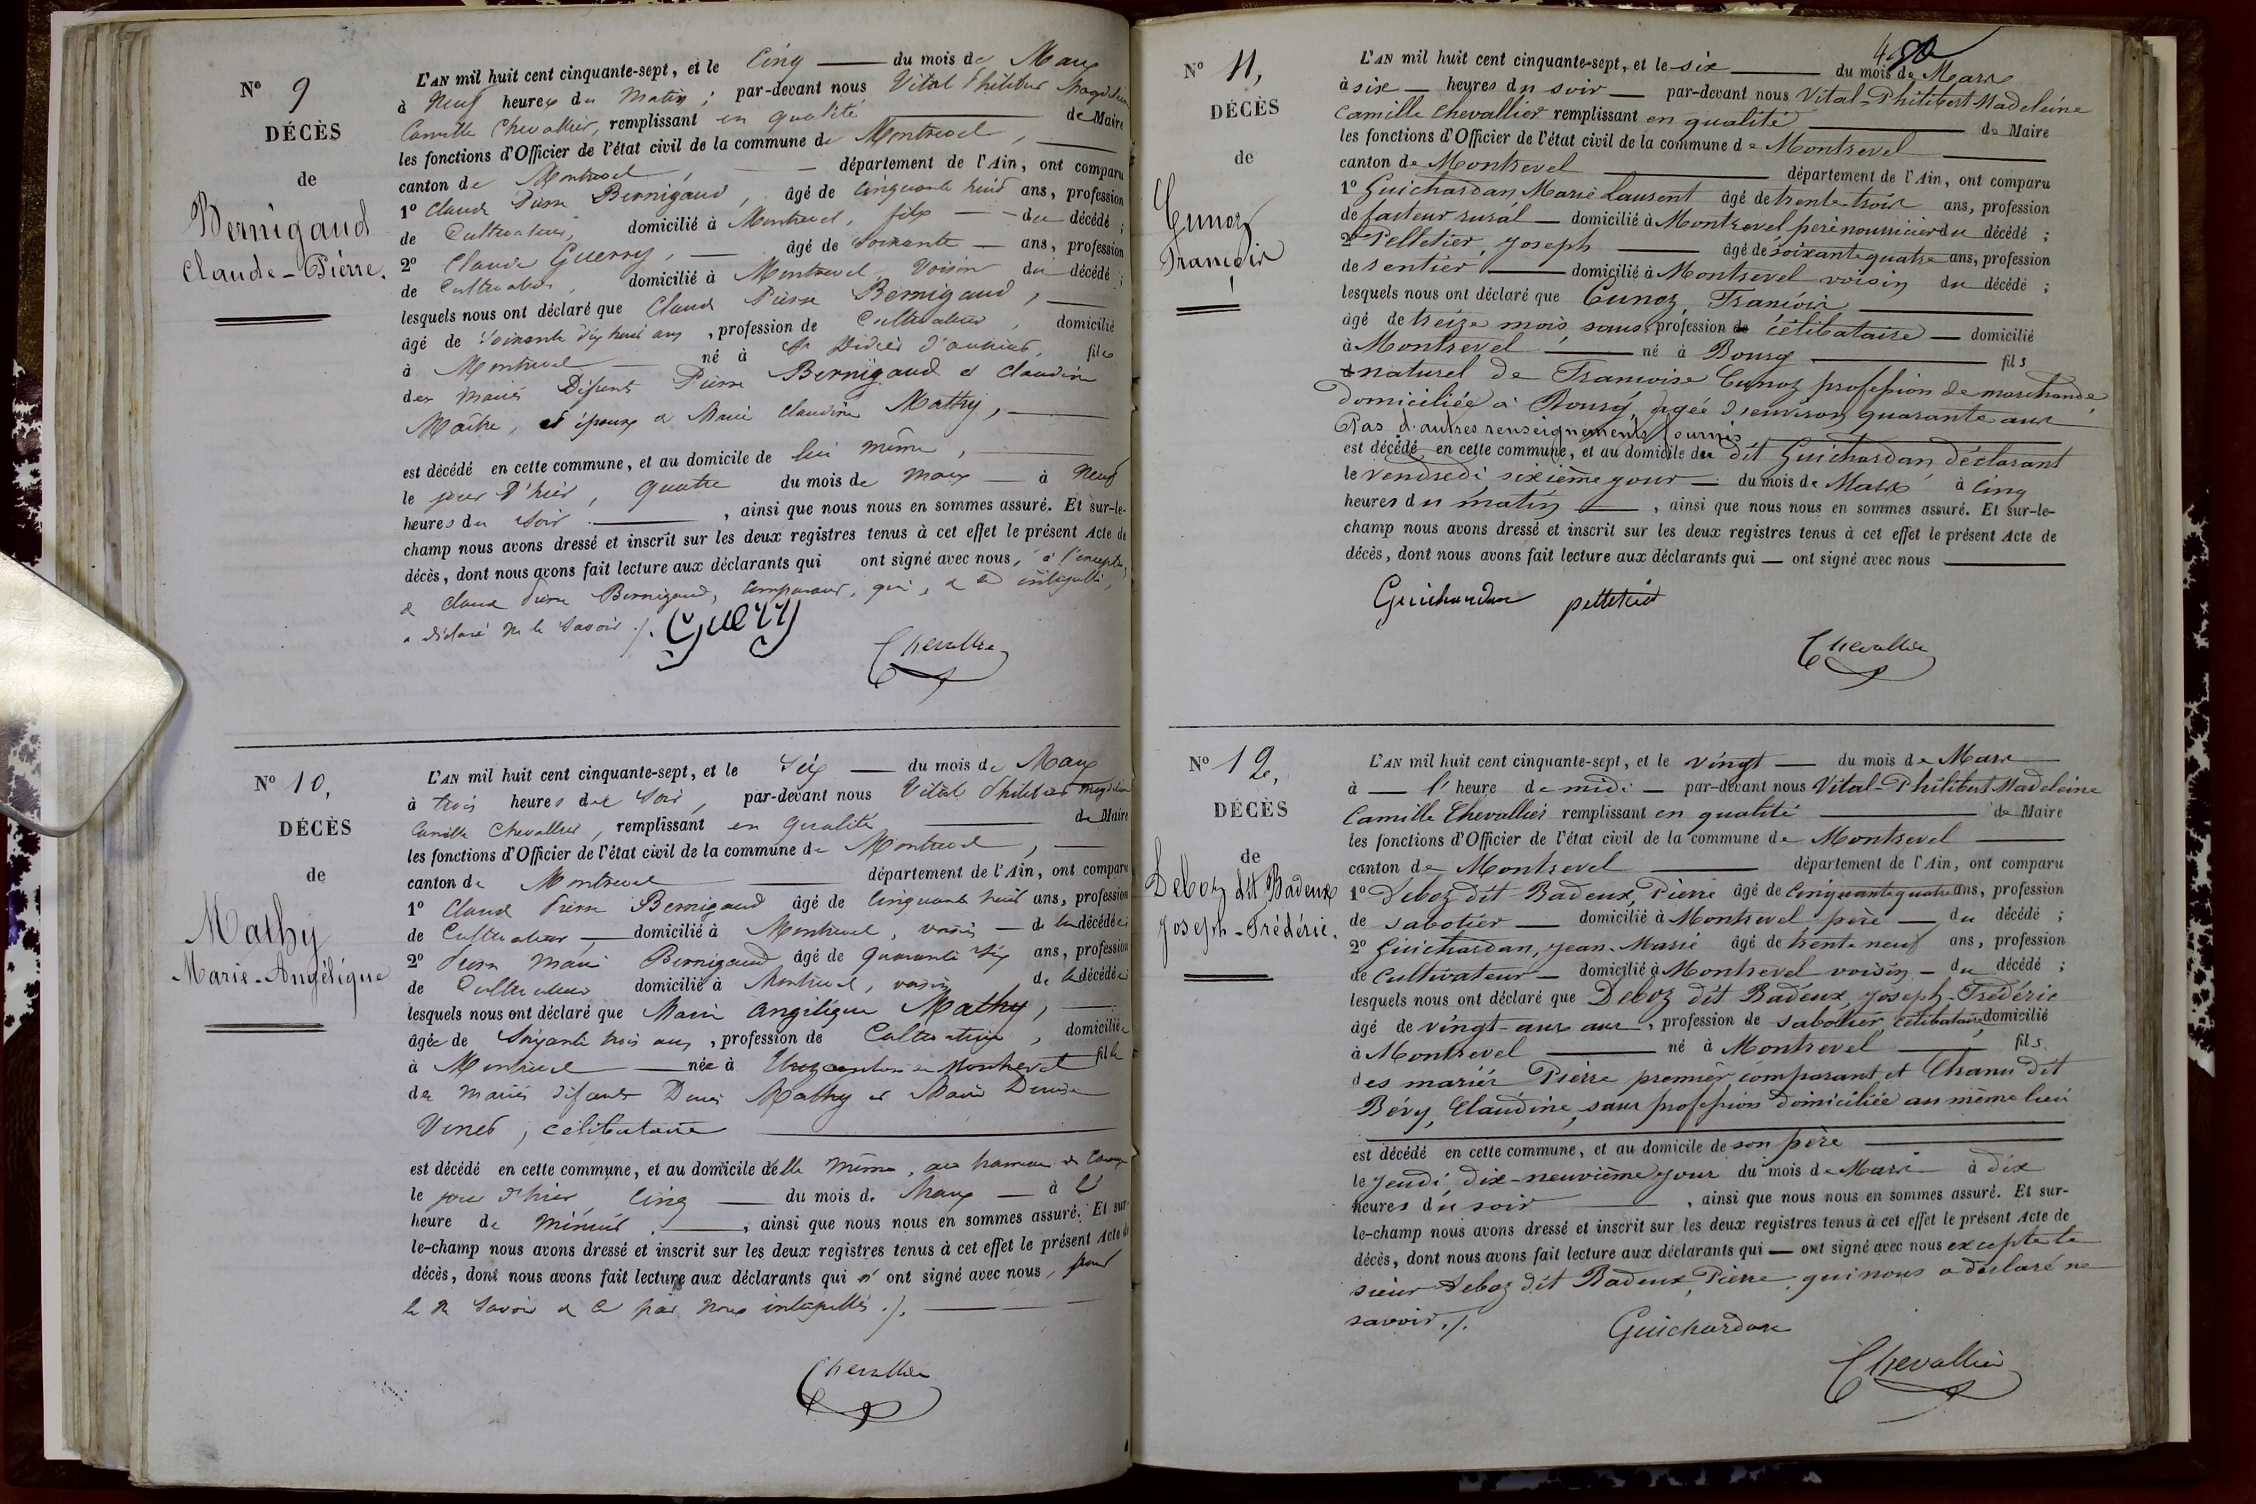 N° 9
DÉCÈS
de
Bernigaud
Claude-Pierre.
L'AN mil huit cent cinquante-sept, et le Cinq — du mois de Mars
à Neuf heures du Matin ; par-devant nous Vital Philibert
Camille Chevallier, remplissant en qualité — de Maire
les fonctions d'Officier de l'état civil de la commune de Montrevel, —
canton de Montrevel, — département de l'Ain, ont comparu
1° Claude Pierre Bernigaud, âgé de Cinquante huit ans, profession
de Cultivateur, domicilié à Montrevel, fils — du décédé ;
2° Claude Guerry, — âgé de soixante — ans, profession
de Cultivateur, domicilié à Montrevel Voisin du décédé ;
lesquels nous ont déclaré que Claude Pierre Bernigaud, —
âgé de soixante dix huit ans, profession de Cultivateur, domicilié
à Montrevel — né à St Didier d'aussiat, fils
des mariés Défunts Pierre Bernigaud et Claudine
Maître, et époux de Marie Claudine Mathy, —
est décédé en cette commune, et au domicile de lui même, —
le jour d'hier, quatre du mois de Mars — à Neuf
heures du Soir —, ainsi que nous nous en sommes assuré. Et sur-le-
champ nous avons dressé et inscrit sur les deux registres tenus à cet effet le présent Acte de
décès, dont nous avons fait lecture aux déclarants qui ont signé avec nous, à l'exception
de Claude Pierre Bernigaud, Comparant, qui, de ce interpellé,
a déclaré ne le savoir ./. Guerry
Chevallier
N° 10,
DÉCÈS
de
Mathy
Marie-Angélique
L'AN mil huit cent cinquante-sept, et le Six — du mois de Mars
à trois heures du Soir, par-devant nous Vital Philibert
Camille Chevallier, remplissant en qualité — de Maire
les fonctions d'Officier de l'état civil de la commune de Montrevel, —
canton de Montrevel — département de l'Ain, ont comparu
1° Claude Pierre Bernigaud âgé de Cinquante huit ans, profession
de Cultivateur — domicilié à Montrevel, voisin — de la décédée
2° Pierre Marie Bernigaud âgé de quarante six ans, profession
de Cultivateur domicilié à Montrevel, voisin de la décédée
lesquels nous ont déclaré que Marie Angélique Mathy, —
âgée de Soixante trois ans, profession de Cultivatrice, domiciliée
à Montrevel — née à canton de Montrevel fille
des mariés défunts Denis Mathy et Marie Denise
Vinet, célibataire —
est décédé en cette commune, et au domicile d'elle même, au hameau de
le jour d'hier, Cinq — du mois de Mars — à l'
heure de minuit —, ainsi que nous nous en sommes assuré. Et sur-
le-champ nous avons dressé et inscrit sur les deux registres tenus à cet effet le présent Acte de
décès, dont nous avons fait lecture aux déclarants qui n'ont signé avec nous, pour
le ne savoir de ce par nous interpellés ./. —
Chevallier
N° 11,
DÉCÈS
de
Cunoz
François
L'AN mil huit cent cinquante-sept, et le six — du mois de Mars
à six — heures du soir — par-devant nous Vital-Philibert Madeleine
Camille Chevallier remplissant en qualité — de Maire
les fonctions d'Officier de l'état civil de la commune de Montrevel —
canton de Montrevel — département de l'Ain, ont comparu
1° Guichardan, Marie Laurent âgé de trente trois ans, profession
de facteur rural — domicilié à Montrevel père nourricier du décédé ;
2° Pelletier, Joseph — âgé de soixante quatre ans, profession
de rentier — domicilié à Montrevel voisin du décédé ;
lesquels nous ont déclaré que Cunoz, François —
âgé de treize mois, sans profession de célibataire — domicilié
à Montrevel — né à Bourg — fils
naturel de Françoise Cunoz profession de marchande
domiciliée à Bourg, âgée d'environ quarante ans
Pas d'autres renseignements fournis —
est décédé en cette commune, et au domicile du dit Guichardan déclarant
le vendredi sixième jour — du mois de Mars à cinq
heures du matin —, ainsi que nous nous en sommes assuré. Et sur-le-
champ nous avons dressé et inscrit sur les deux registres tenus à cet effet le présent Acte de
décès, dont nous avons fait lecture aux déclarants qui — ont signé avec nous —
Guichardan pelletier
Chevallier
N° 12,
DÉCÈS
de
Deboz dit Badeux
Joseph-Frédéric.
L'AN mil huit cent cinquante-sept, et le vingt — du mois de Mars —
à — l'heure de midi — par-devant nous Vital-Philibert Madeleine
Camille Chevallier remplissant en qualité — de Maire
les fonctions d'Officier de l'état civil de la commune de Montrevel —
canton de Montrevel — département de l'Ain, ont comparu
1° Deboz dit Badeux, Pierre âgé de cinquante quatre ans, profession
de sabotier — domicilié à Montrevel père — du décédé ;
2° Guichardan, Jean-Marie âgé de trente neuf ans, profession
de Cultivateur — domicilié à Montrevel voisin — du décédé ;
lesquels nous ont déclaré que Deboz dit Badeux, Joseph-Frédéric
âgé de vingt-un ans, profession de sabotier, célibataire, domicilié
à Montrevel — né à Montrevel — fils
des mariés Pierre premier comparant et Chanu dit
Bévy, Claudine, sans profession domiciliée au même lieu
est décédé en cette commune, et au domicile de son père —
le jeudi dix-neuvième jour du mois de Mars — à dix
heures du soir —, ainsi que nous nous en sommes assuré. Et sur-
le-champ nous avons dressé et inscrit sur les deux registres tenus à cet effet le présent Acte de
décès, dont nous avons fait lecture aux déclarants qui — ont signé avec nous excepté le
sieur Deboz dit Badeux, Pierre, qui nous a déclaré ne
savoir ./. Guichardan
Chevallier